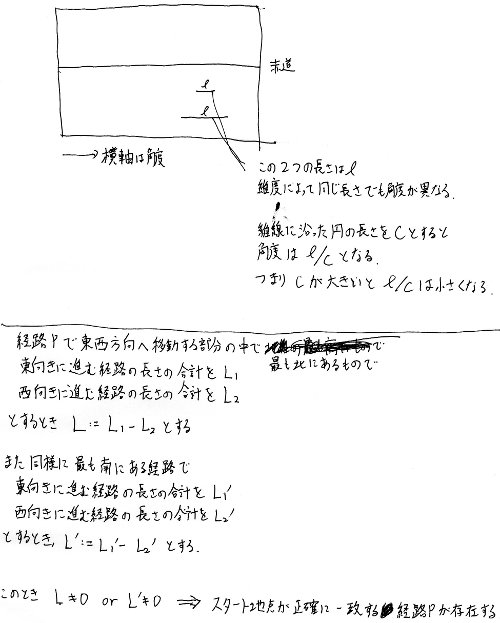 赤道
l
l
→ 横軸は角度
この2つの長さは l
緯度によって同じ長さでも角度が異なる.
緯線に沿った円の長さを C とすると
角度は l/C となる.
つまり C が大きいと l/C は小さくなる.
経路 P で東西方向へ移動する部分の中で
最も北にあるもので
東向きに進む経路の長さの合計を L₁
西向きに進む経路の長さの合計を L₂
とするとき L := L₁ - L₂ とする
また同様に最も南にある経路で
東向きに進む経路の長さの合計を L₁'
西向きに進む経路の長さの合計を L₂'
とするとき, L' := L₁' - L₂' とする.
このとき L≠0 or L'≠0 ⇒ スタート地点が正確に一致する経路Pが存在する